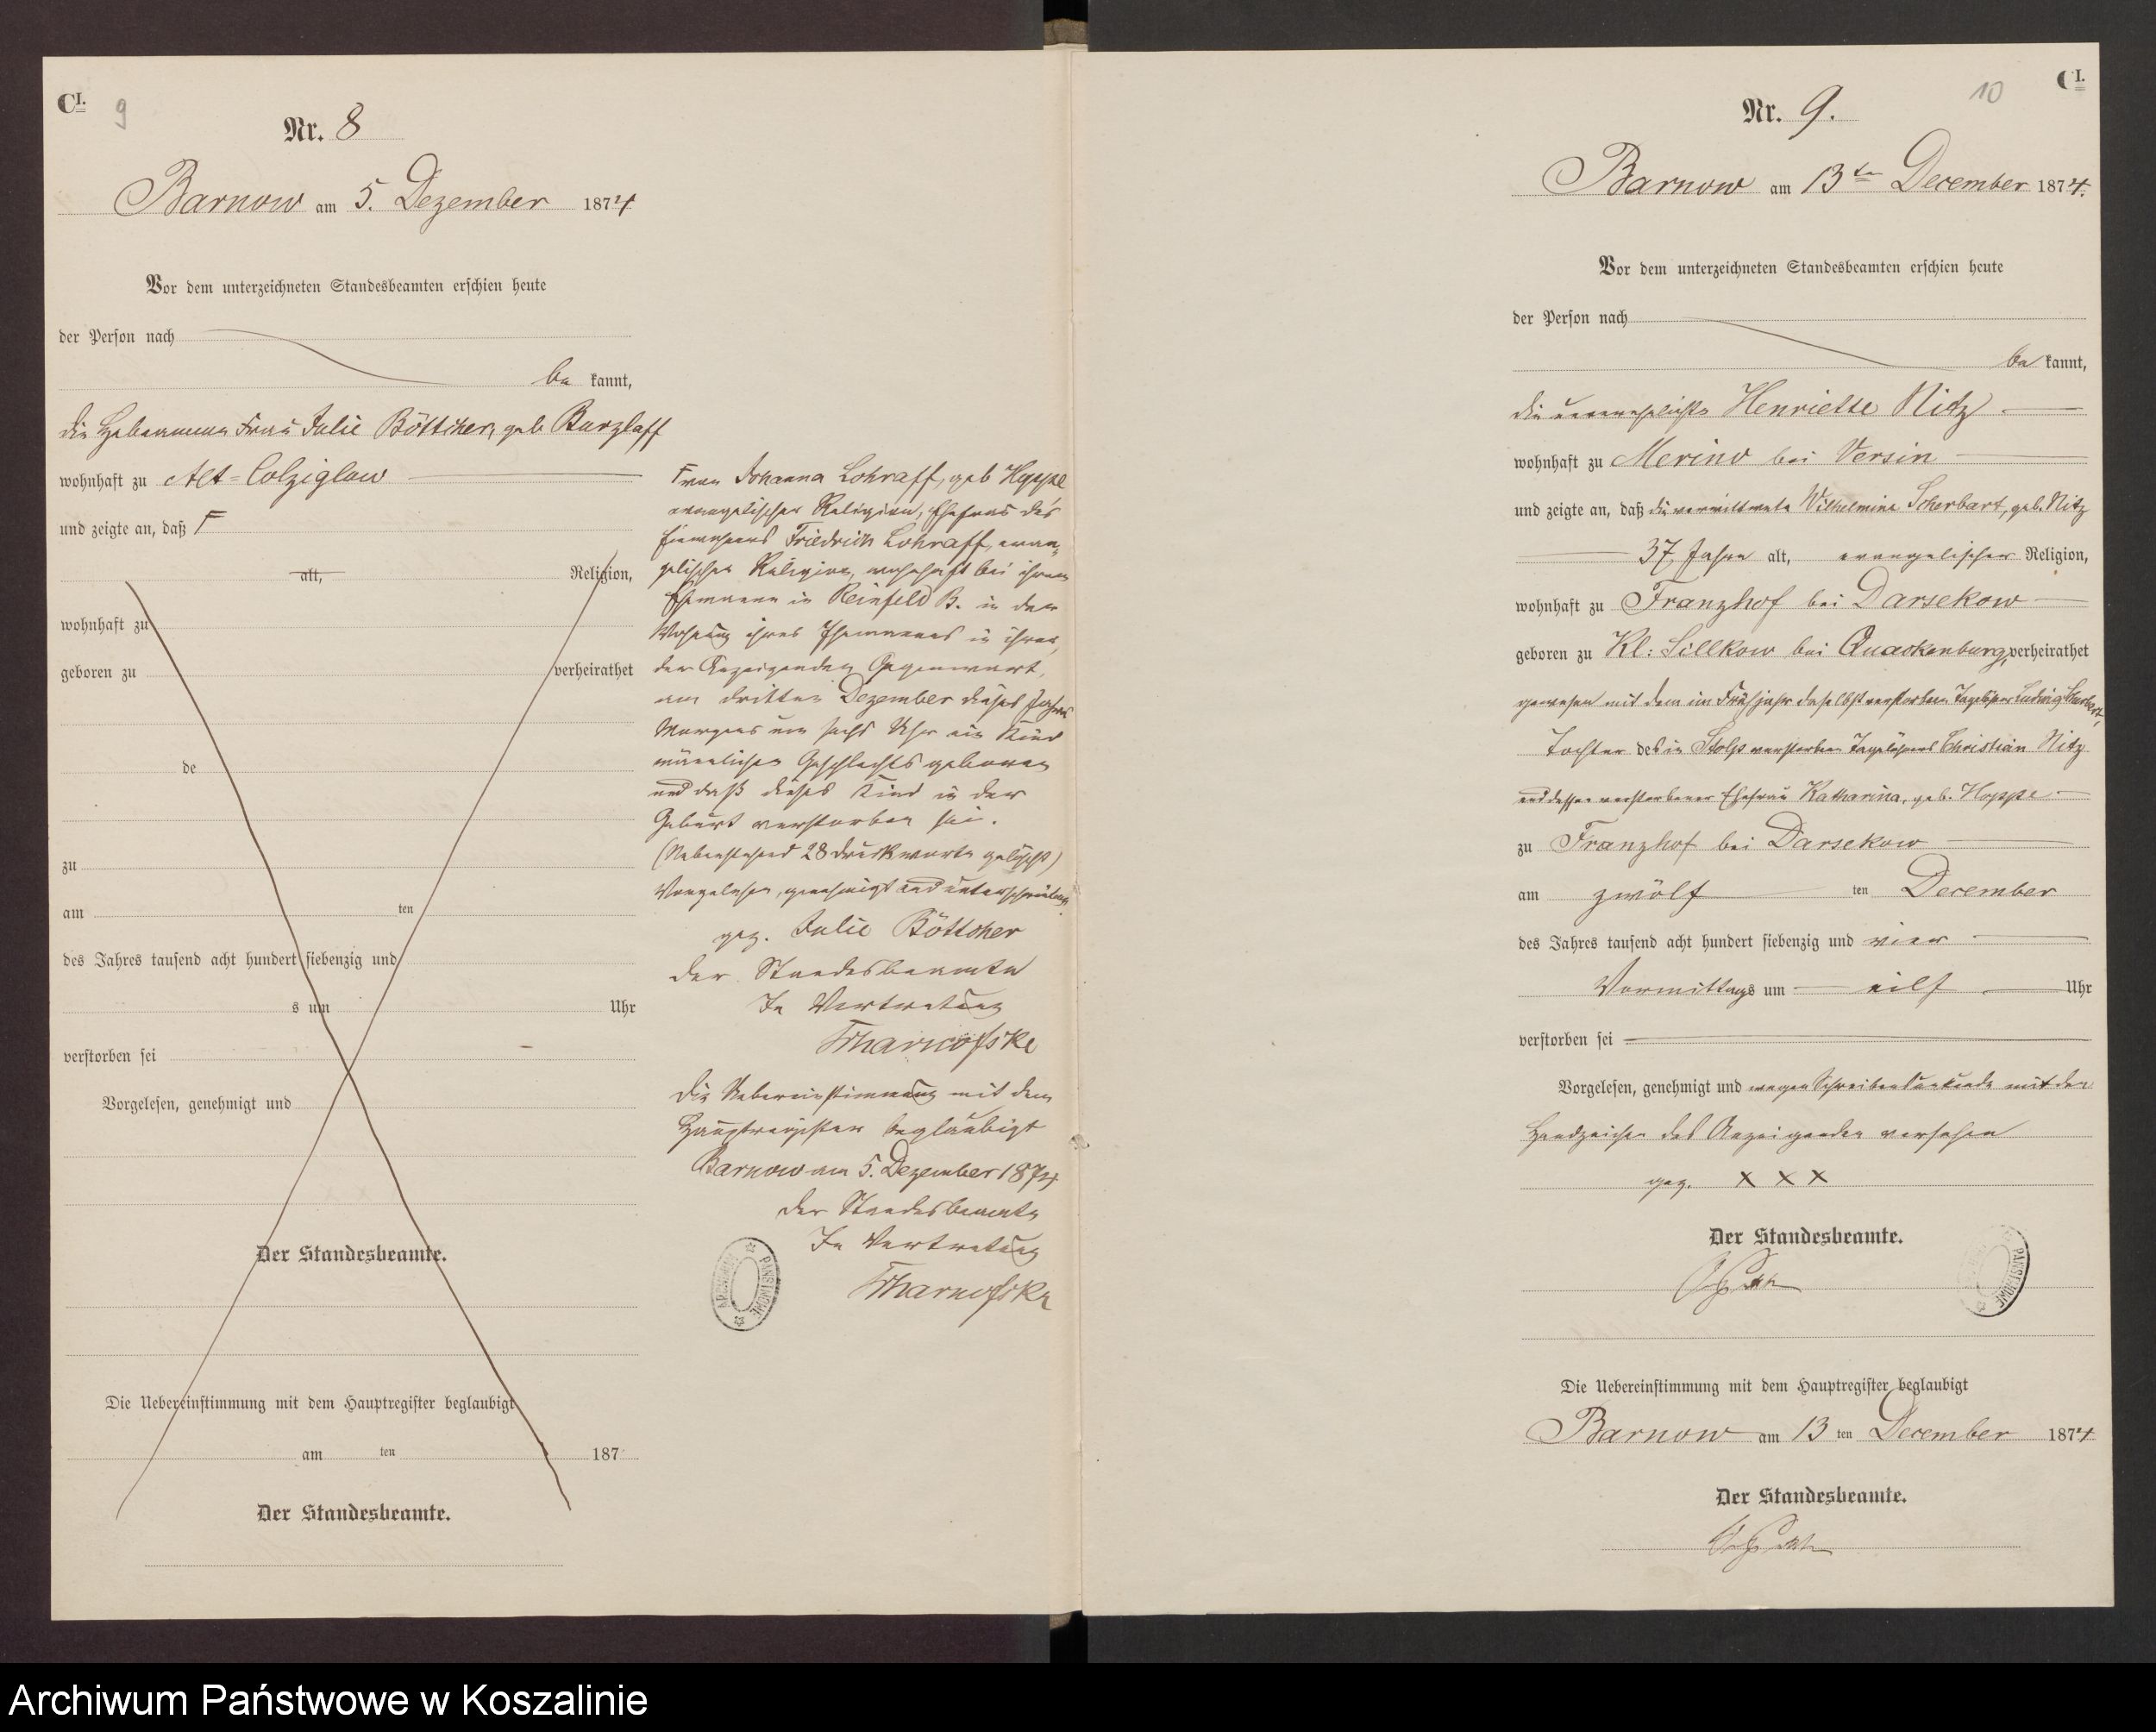 C I.
9
Nr. 8
Barnow am 5. Dezember 1874
Vor dem unterzeichneten Standesbeamten erschien heute
der Person nach
be kannt,
die Hebeamme Frau Julie Böttcher, geb Burzlaff
wohnhaft zu Alt-Colziglow
und zeigte an, daß F
alt, Religion,
wohnhaft zu
geboren zu verheirathet
de
zu
am ten
des Jahres tausend acht hundert siebenzig und
s um Uhr
verstorben sei
Vorgelesen, genehmigt und
Der Standesbeamte.
Die Uebereinstimmung mit dem Hauptregister beglaubigt
am ten 187
Der Standesbeamte.
Frau Johanna Lohraff, geb Hoppe
evangelischer Religion, Ehefrau des
Friedrich Lohraff, evan-
gelischer Religion, wohnhaft bei ihrem
Ehemanne in Reinfeld B. in der
Wohnung ihres Ehemannes in ihrer,
der Anzeigenden Gegenwart,
am dritten Dezember dieses Jahres
Morgens um sechs Uhr ein Kind
männlichen Geschlechts geboren
und daß dieses Kind in der
Geburt verstorben sei.
(Nebenstehend 28 Druckworte gelöscht)
Vorgelesen, genehmigt und unterschrieben.
gez. Julie Böttcher
Der Standesbeamte
In Vertretung
Die Uebereinstimmung mit dem
Hauptregister beglaubigt
Barnow am 5. Dezember 1874
Der Standesbeamte
In Vertretung
ARCHIWUM PAŃSTWOWE
C I.
10
Nr. 9.
Barnow am 13ten December 1874.
Vor dem unterzeichneten Standesbeamten erschien heute
der Person nach
be kannt,
die unverehelichte Henriette Nitz
wohnhaft zu Merino bei Versin
und zeigte an, daß die verwittwete Wilhelmine Scherbart, geb. Nitz
37 Jahre alt, evangelischer Religion,
wohnhaft zu Franzhof bei Darsekow
geboren zu Kl: Sillkow bei Quackenburg, verheirathet
gewesen mit dem im Frühjahr daselbst verstorbenen Tagelöhner Ludwig Scherbart,
Tochter des in Stolp verstorbenen Tagelöhners Christian Nitz
und dessen verstorbener Ehefrau Katharina, geb. Hoppe
zu Franzhof bei Darsekow
am zwölf ten December
des Jahres tausend acht hundert siebenzig und vier
Vormittags um eilf Uhr
verstorben sei
Vorgelesen, genehmigt und wegen Schreibensunkunde mit dem
Handzeichen des Anzeigenden versehen
gez. x x x
Der Standesbeamte.
PAŃSTWOWE
Die Uebereinstimmung mit dem Hauptregister beglaubigt
Barnow am 13 ten December 1874
Der Standesbeamte.
Archiwum Państwowe w Koszalinie